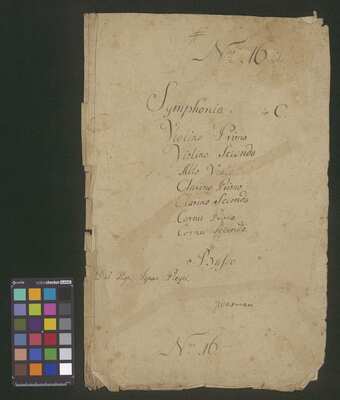 Nro. 16
Symphonia in C
Violino Primo
Violino Secondo
Alto Viola
Clarino Primo
Clarino Secondo
Cornu Primo
Cornu Secondo
e Basso
Del Sigr. Ignaz Pleyel
Nro. 16